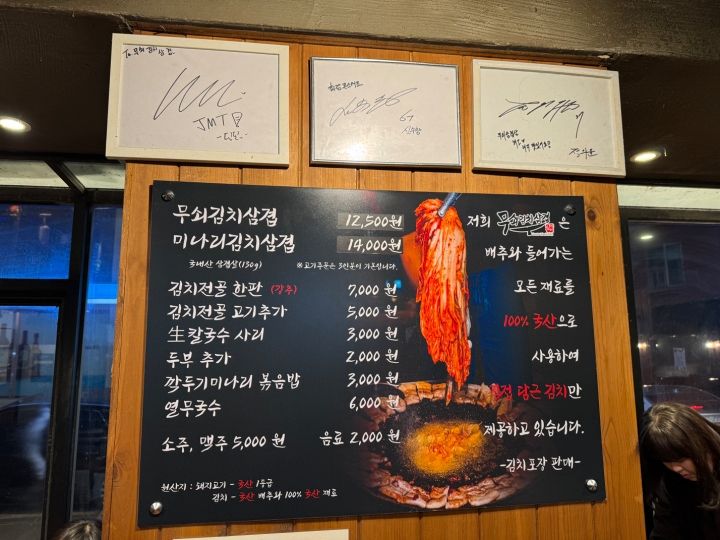 To. 무쇠 김치 삼겹.
JMT
67
7
무쇠김치삼겹 12,500원
미나리김치삼겹 14,000원
국내산 삼겹살(130g) ※고기주문은 3인분이 기본입니다.
김치전골 한판 (강추) 7,000 원
김치전골 고기추가 5,000 원
生칼국수 사리 3,000 원
두부 추가 2,000 원
깍두기미나리 볶음밥 3,000 원
열무국수 6,000 원
소주, 맥주 5,000 원 음료 2,000 원
원산지 : 돼지고기 - 국산 1등급
김치 - 국산 배추와 100% 국산 재료
저희 무쇠김치삼겹 은
배추와 들어가는
모든 재료를
100% 국산으로
사용하여
직접 담근 김치만
제공하고 있습니다.
-김치포장 판매-